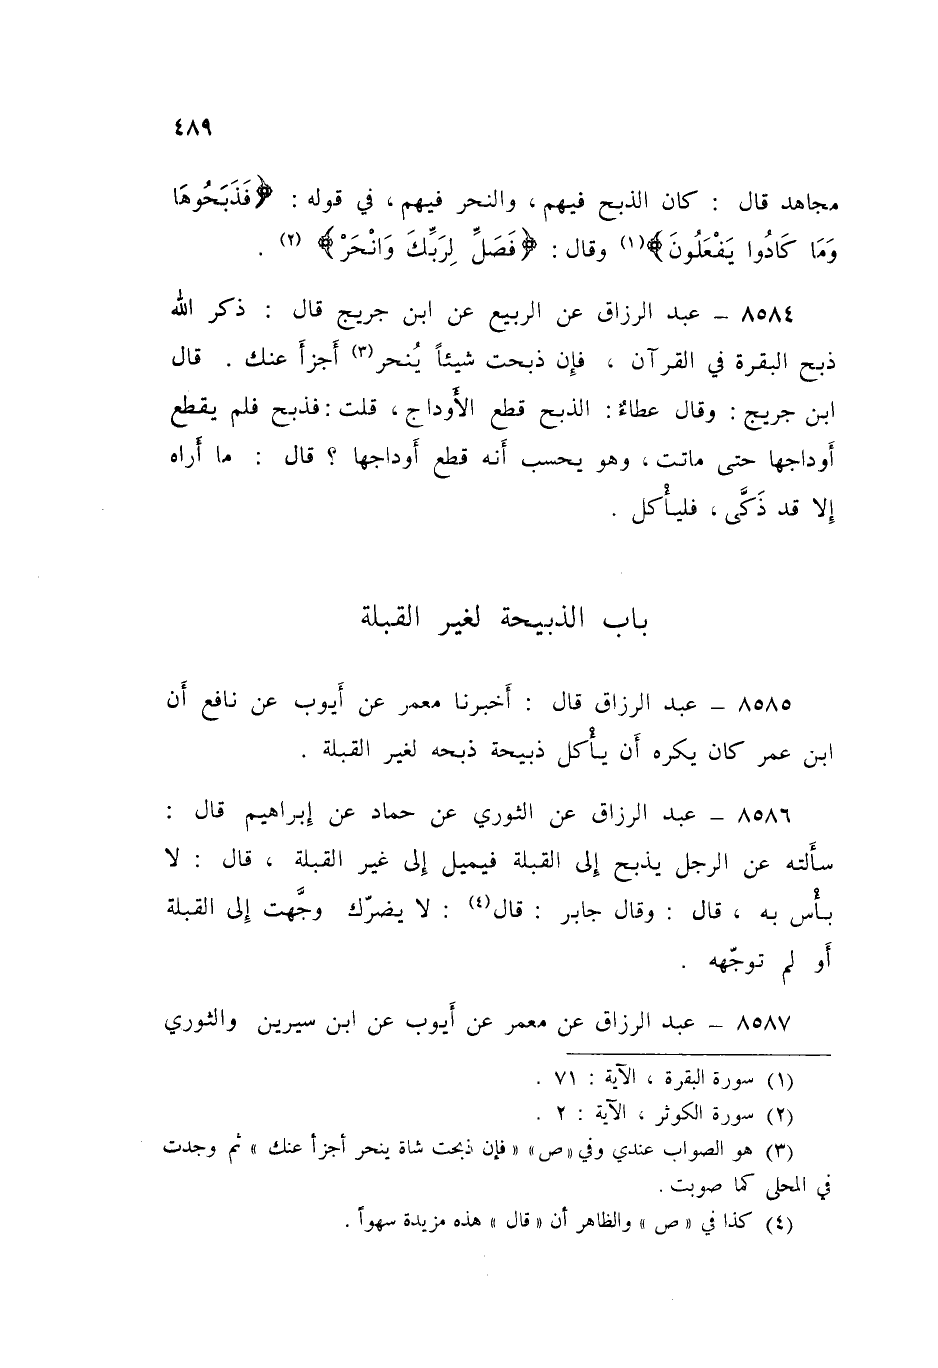 ٤٨٩
مجاهد قال : كان الذبح فيهم ، والنحر فيهم ، في قوله : ﴿فَذَبَحُوهَا
وَمَا كَادُوا يَفْعَلُونَ﴾(١) وقال : ﴿فَصَلِّ لِرَبِّكَ وَانْحَرْ﴾ (٢) .
٨٥٨٤ – عبد الرزاق عن الربيع عن ابن جريج قال : ذكر الله
ذبح البقرة في القرآن ، فإن ذبحت شيئاً يُنحر(٣) أَجزأَ عنك . قال
ابن جريج : وقال عطاءٌ : الذبح قطع الأَوداج ، قلت : فذبح فلم يقطع
أَوداجها حتى ماتت ، وهو يحسب أَنه قطع أَوداجها ؟ قال : ما أَراه
إلا قد ذَكَّى ، فليأْكل .
باب الذبيحة لغير القبلة
٨٥٨٥ – عبد الرزاق قال : أَخبرنا معمر عن أَيوب عن نافع أَن
ابن عمر كان يكره أَن يأْكل ذبيحة ذبحه لغير القبلة .
٨٥٨٦ – عبد الرزاق عن الثوري عن حماد عن إبراهيم قال :
سأَلته عن الرجل يذبح إلى القبلة فيميل إلى غير القبلة ، قال : لا
بأْس به ، قال : وقال جابر : قال(٤) : لا يضرّك وجَّهت إلى القبلة
أَو لم توجّهه .
٨٥٨٧ – عبد الرزاق عن معمر عن أَيوب عن ابن سيرين والثوري
(١) سورة البقرة ، الآية : ٧١ .
(٢) سورة الكوثر ، الآية : ٢ .
(٣) هو الصواب عندي وفي « ص » « فإن ذبحت شاة ينحر أجزأ عنك » ثم وجدت
في المحلى كما صوبت .
(٤) كذا في « ص » والظاهر أن « قال » هذه مزيدة سهواً .